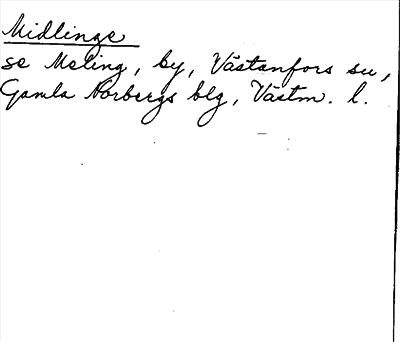 Midlinge
se Meling, by, Västanfors sn,
Gamla Norbergs blg, Västm. l.